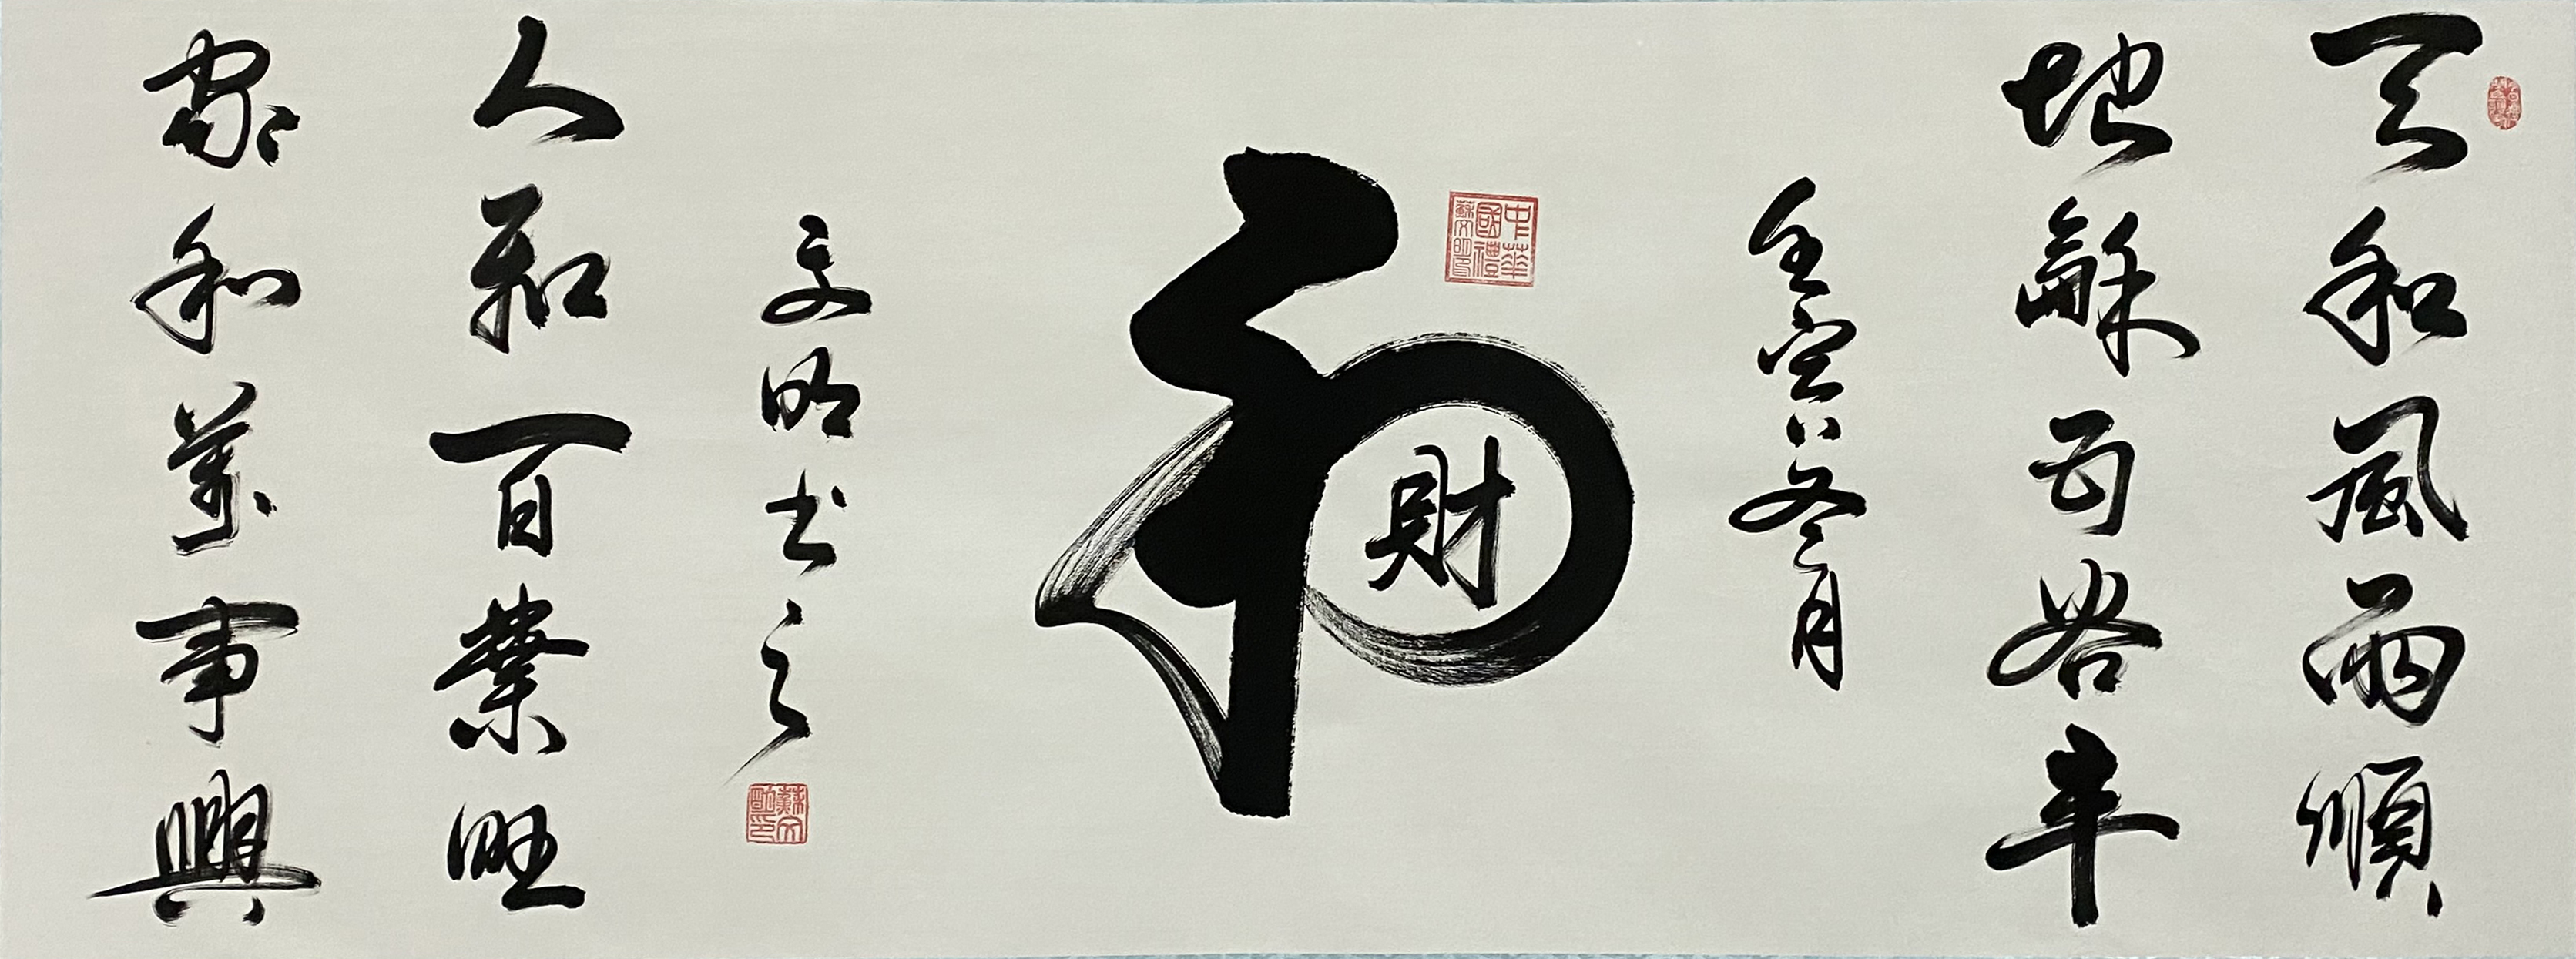 天和風雨順
地龢五谷丰
壬寅冬月
中華國禮蘇文明印
和
財
文明书之
蘇文明印
人和百業旺
家和萬事興